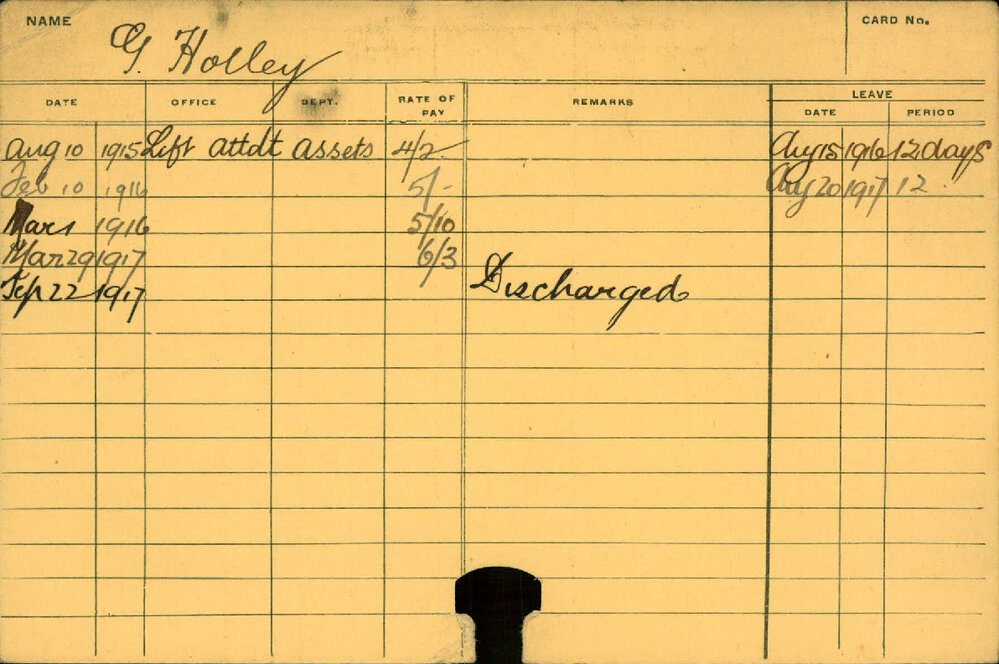 NAME G. Holley CARD No.
DATE OFFICE DEPT. RATE OF PAY REMARKS LEAVE
DATE PERIOD
Aug 10 1915 Lift attdt assets 4/2 Aug 15 1916 12 days
Feb 10 1916 5/- Aug 20 1917 12
Mar 1 1916 5/10
Mar 29 1917 6/3
Sep 22 1917 Discharged